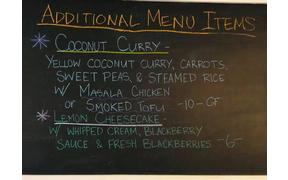 ADDITIONAL MENU ITEMS
* COCONUT CURRY -
YELLOW COCONUT CURRY, CARROTS,
SWEET PEAS, & STEAMED RICE
W/ MASALA CHICKEN
OR SMOKED TOFU -10- GF
* LEMON CHEESECAKE -
W/ WHIPPED CREAM, BLACKBERRY
SAUCE & FRESH BLACKBERRIES -6-